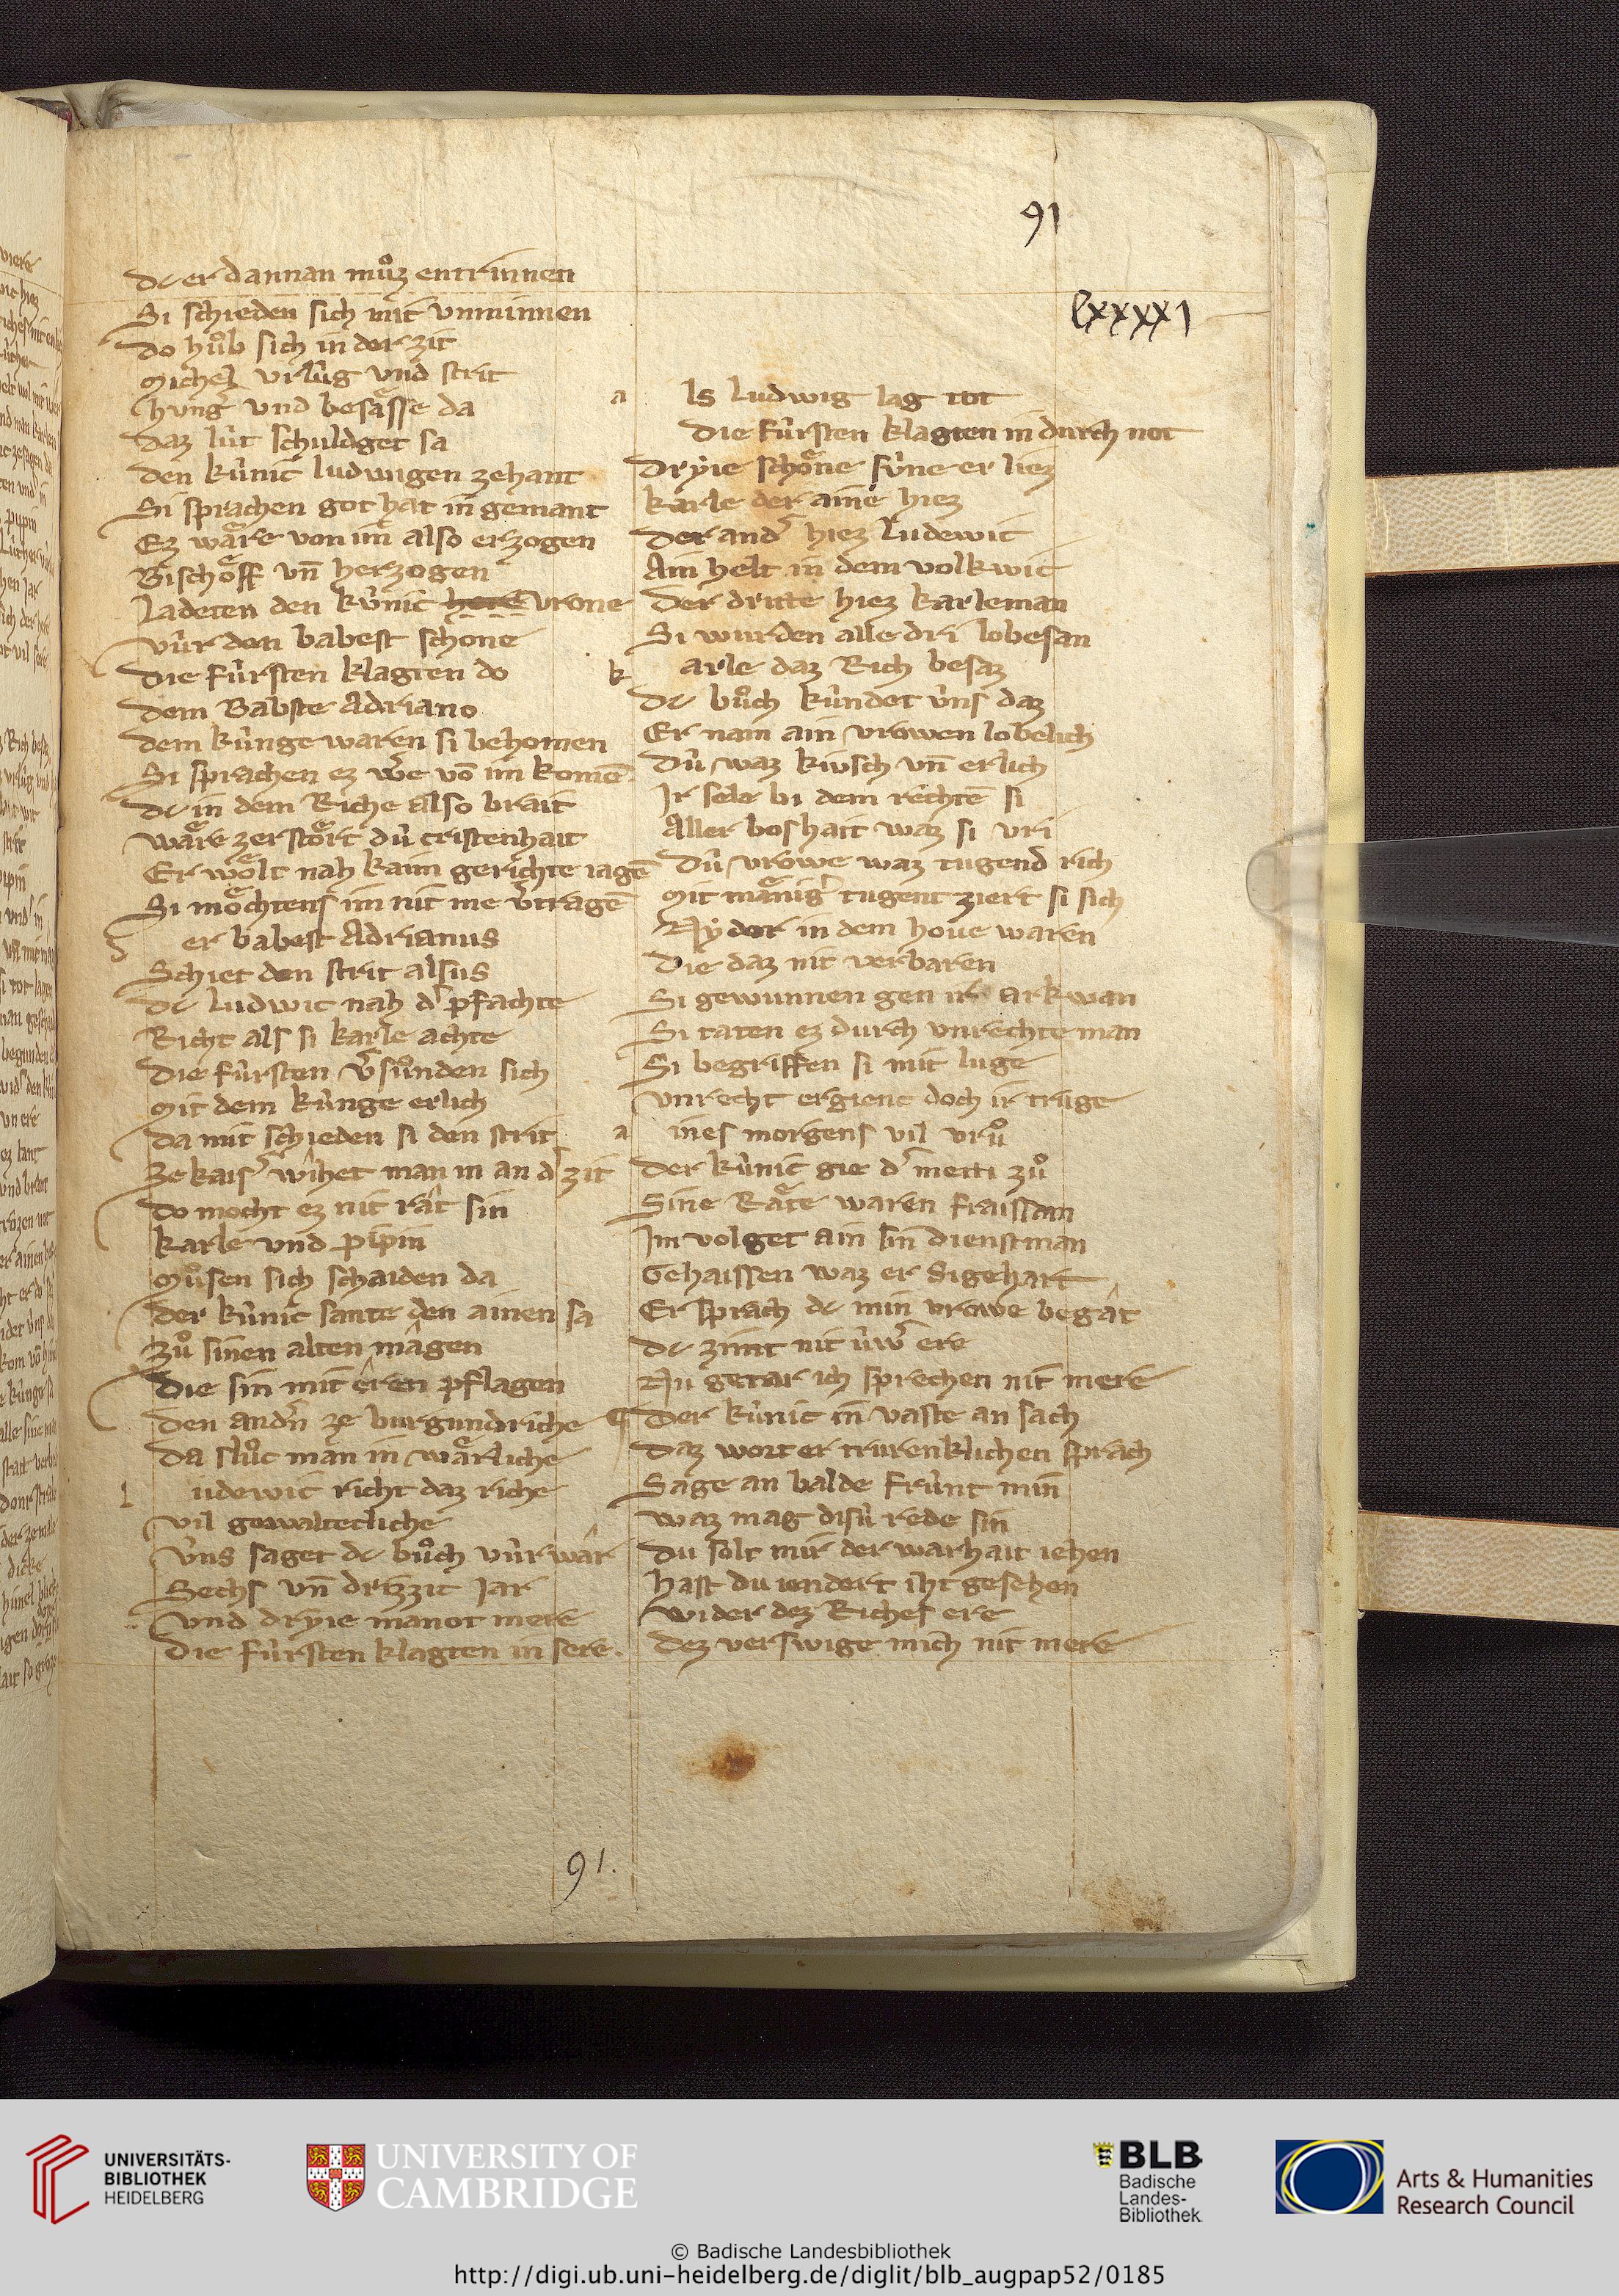 91
lxxxxı
dc er dannan muͦz entrinnen
Si schieden sich mit vnminnen
do huͦb sich in der zit
Michel vrlûg vnd strit
hvng͛ vnd besaͤsse da
daz lût schuldget sa
den kûnic ludwigen zehant
Si sprachen got hat in gemant
Ez waͤre von im also erzogen
Bischoͤff vn̄ herzogen
Ladeten den kûnic here vrone
vûr den babest schone
die fûrsten klagten do
dem Babste Adriano
dem kûnge waren si bechomen
Si sprachen ez we͛ vō im komē
dc in dem Riche also brait
waͤre zerstoͤrt dû cristenhait
Er woͤlt nah kaim gerichte iagē
Si moͤchtens im nit me v͛tragē
d er babest Adrianus
Schiet den strit alsus
dc ludwic nah d͛ pfachte
Richt als si karle achte
die fûrsten v͛suͦnden sich
Mit dem kûnge erlich
da mit schieden si den strit
ze kais͛ wîhet man in an d͛ zit
do mocht ez nit rât sin
karle vnd pipin
Muͦsen sich schaiden da
der kûnic sante den ainen sa
zuͦ sinen alten mâgen
die sin mit êren pflagen
den andn̄ ze burgundriche
da sluͦc man in waͤrliche
l udewic richt daz riche
vil gewaltecliche
vns saget dc buͦch vûr wâr
Sechs vn̄ drizzic Jar
vnd dryie manot mere
die fûrsten klagten in sere.
a ls ludwig lag tot
die fûrsten klagten in durch not
dryie schoͤne sûne er liez
karle der aine hiez
der and͛ hiez ludewic
Ain helt in dem volkwic
der dritte hiez karleman
Si wurden alle dri lobesan
k arle daz Rich besaz
dc buͦch kûndet vns daz
Er nam ain vrowen lobelich
dû waz kivsch vn̄ erlich
Ir sele bi dem rechtē si
Aller boshait waz si vri
dû vrowe waz tugend rich
Mit maͤnig͛ tugent ziert si sich
Nyder in dem houe waren
die daz nit verbaren
Si gewunnen gen ir arkwan
Si taten ez durch vnrechte man
Si begriffen si mit luge
vnrecht ergienc doch ir truge
a ines morgens vil vruͦ
der kûnic gie d͛ metti zuͦ
Sine Raͤte waren fraissam
Im volget ain sin dienstman
Gehaissen waz er sigehart
Er sprach dc min vrowe begât
dc zimt nit ûw͛ ere
Nu getar ich sprechen nit mere
¶ der kûnic in vaste an sach
daz wort er trurenklichen sprach
Sage an balde frûnt min
waz mag disû rede sin
du solt mir der warhait iehen
hast du iendert iht gesehen
wider dez Riches ere
dez verswige mich nit mere
91.
UNIVERSITÄTS-
BIBLIOTHEK
HEIDELBERG
UNIVERSITY OF
CAMBRIDGE
BLB
Badische
Landes-
Bibliothek
Arts & Humanities
Research Council
© Badische Landesbibliothek
http://digi.ub.uni-heidelberg.de/diglit/blb_augpap52/0185